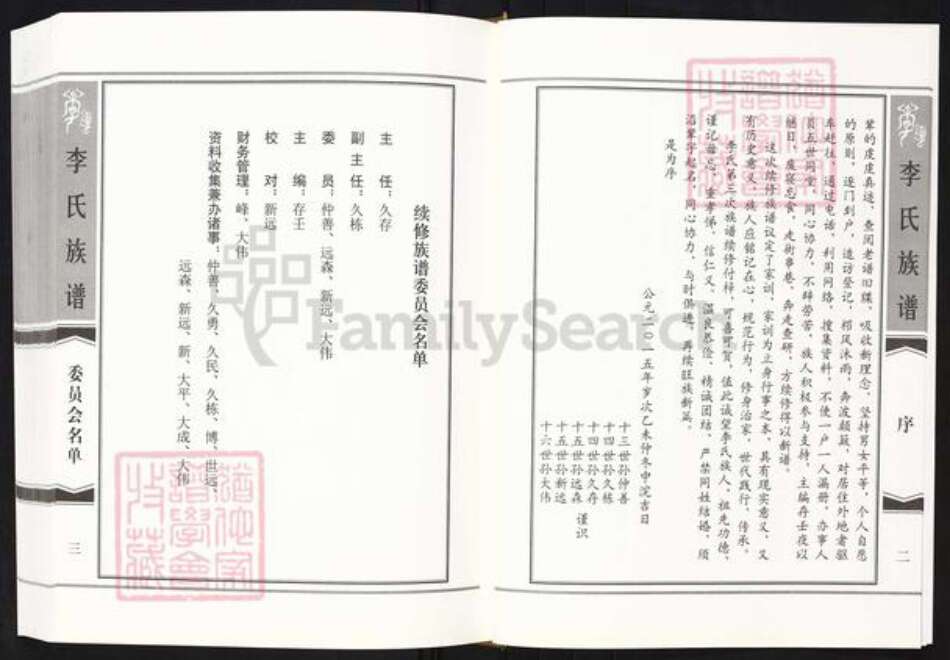 李氏族谱
序
二
辈的虔虔真迹，查阅老谱旧牒，吸收新理念，坚持男女平等，个人自愿
的原则，逐门到户，造访登记，栉风沐雨，奔波颠簸，对居住外地者驱
车赶往，通过电话，利用网络，搜集资料，不使一户一人漏册，办事人
员五世同堂，同心协力，不辞劳苦，族人积极参与支持，主编存士夜以
继日，废寝忘食，走街串巷，奔走查研，方续修得以新谱。
这次续修族谱议定了家训，家训为立身行事之本，具有现实意义，又
有历史意义，族人应铭记在心，规范行为，修身治家，世代践行，传承。
李氏第三次族谱续修付梓，可喜可贺，值此诚望李氏族人，祖先功德，
谨记勿忘，重孝悌，信仁义，温良恭俭，精诚团结，严禁同姓结婚，须
沿辈字起名，同心协力，与时俱进，再续旺族新篇。
是为序
公元二〇一五年岁次乙未仲冬中浣吉日
十三世孙仲善
十四世孙久栋
十四世孙久存
十五世孙远森 谨识
十五世孙新远
十六世孙大伟
续修族谱委员会名单
主任：久存
副主任：久栋
委员：仲善、远森、新远、大伟
主编：存壬
校对：新远
财务管理：峰、大伟
资料收集兼办诸事：仲善、久勇、久民、久栋、博、世远、
远森、新远、新、大平、大成、大伟
李氏族谱
委员会名单
三
FamilySearch